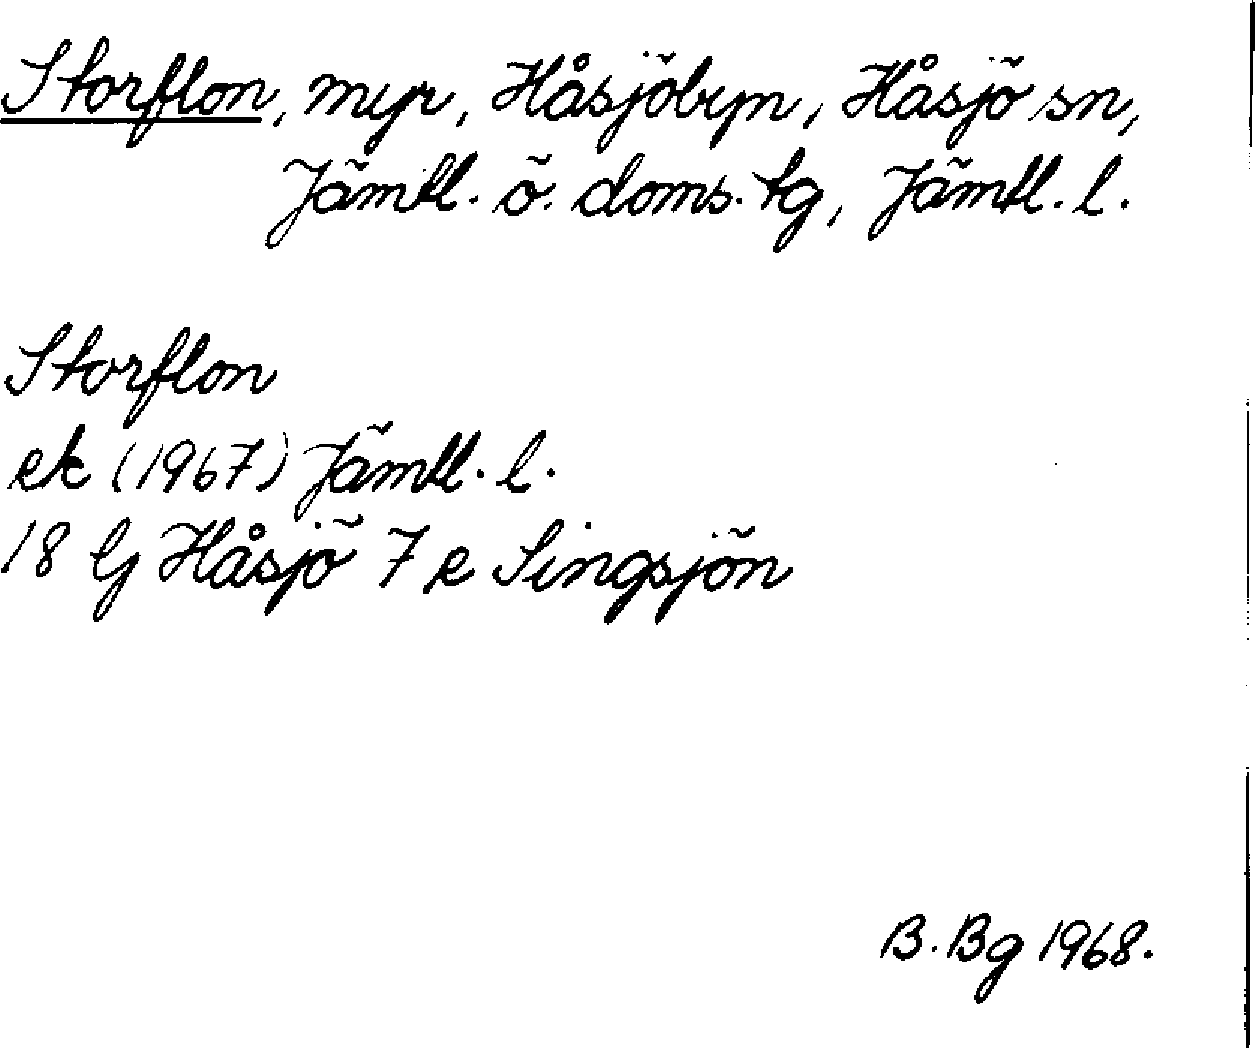 Storflon, myr, Håsjöbyn, Håsjö sn,
Jämtl. ö. doms. tg, Jämtl. l.
Storflon
ek (1967) Jämtl. l.
18 G Håsjö 7 e Singsjön
B. Bg 1968.